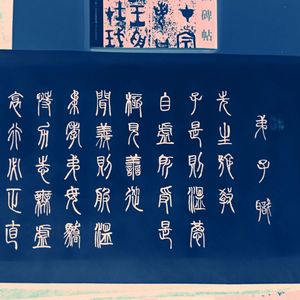 碑帖
弟子職
先生施教
子是則溫恭
自虛所受是
極見善從
聞義則服溫
柔孝弟毋驕
恃力志無虛
邪行必正直